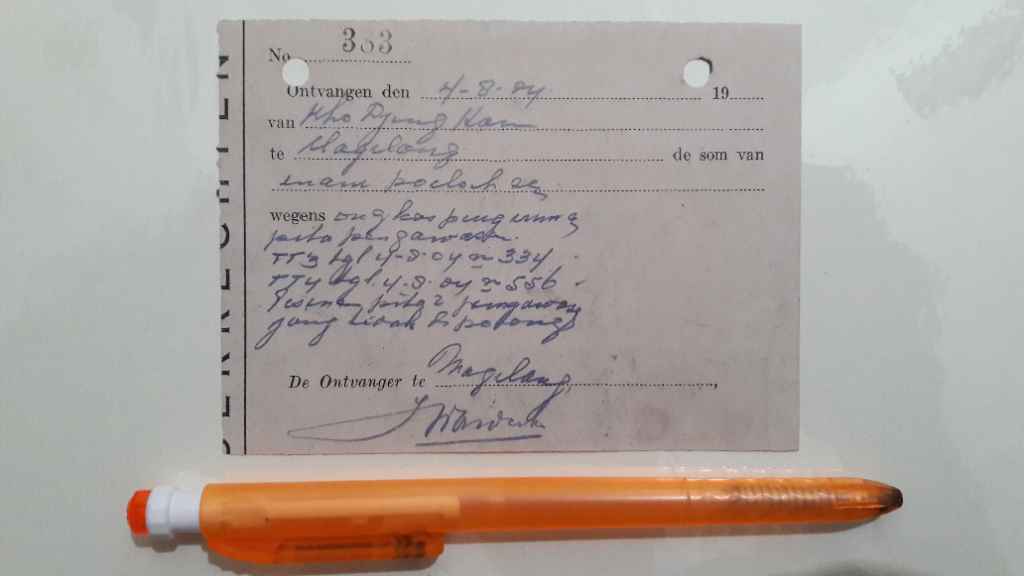 No 303
Ontvangen den 4-8-04 19
van Kho Djung Kam
te Magelang de som van
enam poeloeh sen
wegens ongkos
pita pengawasan
TT3 tgl 4-8-04 no 334
TT4 tgl 4-8-04 no 556
pita2
jang tidak di potong
De Ontvanger te Magelang,